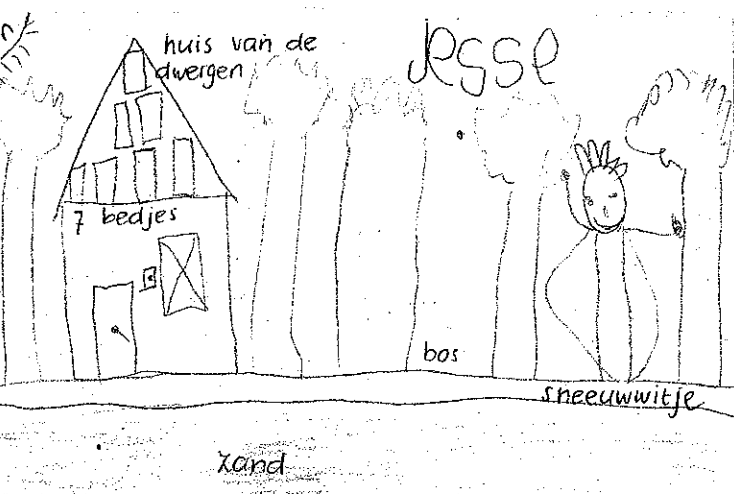 huis van de
dwergen
Jesse
7 bedjes
bos
sneeuwwitje
zand